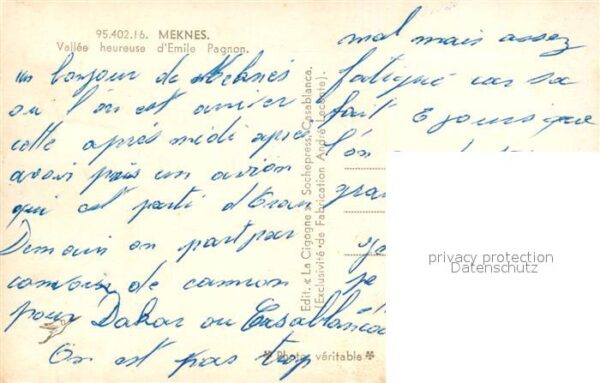 95.402.16. MEKNES.
Vallée heureuse d'Emile Pagnon.
un bonjour de Meknès
ou l'on est arriver
cette après midi après
avoir pris un avion
qui est parti d'Oran
Demain on part par
convoie de camion
pour Dakar ou Casablanca
On est pas trop
mal mais assez
fatigué car sa
fait 8 jours que
l'on
gra
je
Edit. « La Cigogne » Sochepress, Casablanca.
(Exclusivité de Fabrication André Leconte).
* Photo véritable *
privacy protection
Datenschutz